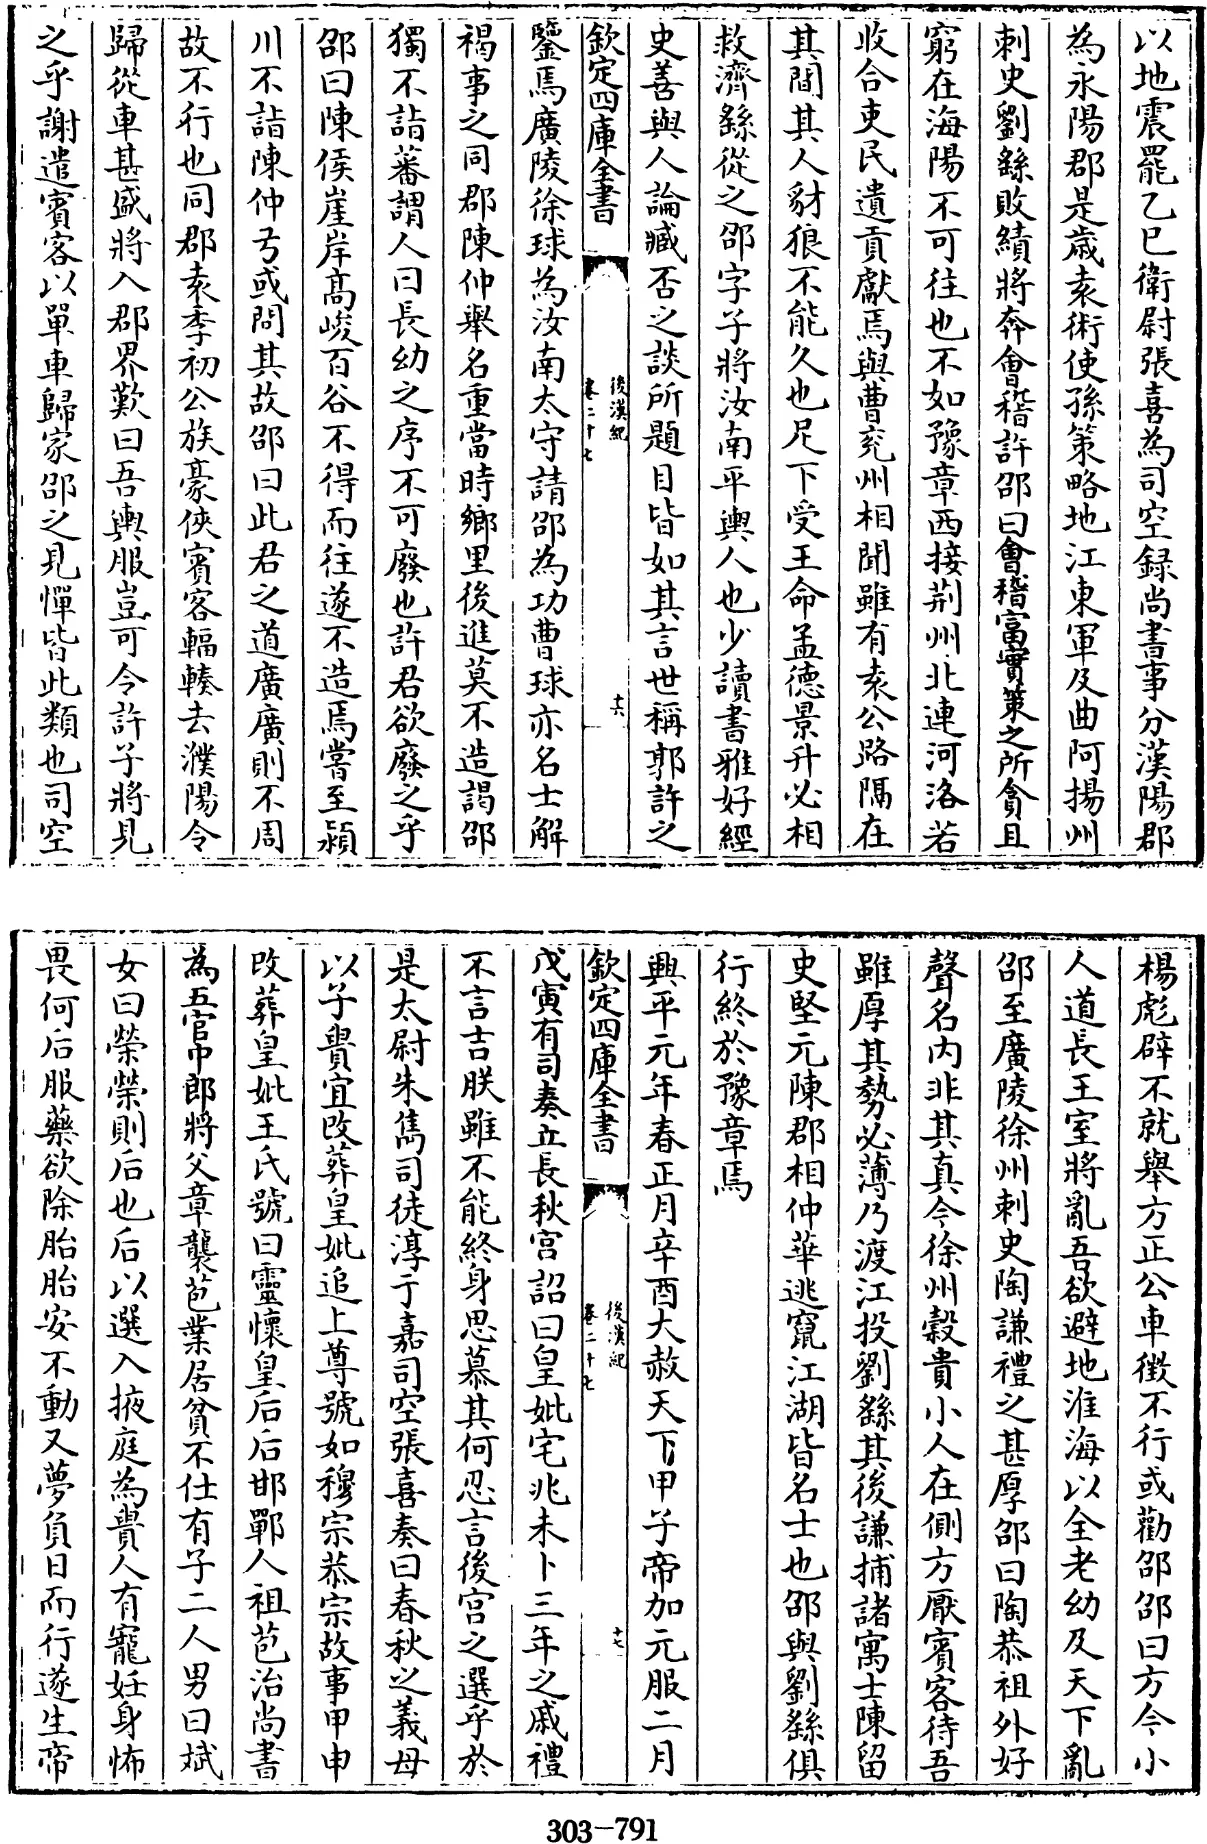 以地震罷乙巳衛尉張喜為司空録尚書事分漢陽郡
為永陽郡是歳袁術使孫策略地江東軍及曲阿揚州
刺史劉繇敗績將奔會稽許邵曰會稽富實策之所貪且
窮在海陽不可往也不如豫章西接荆州北連河洛若
收合吏民遺貢獻焉與曹兖州相聞雖有袁公路隔在
其間其人豺狼不能久也足下受王命孟德景升必相
救濟繇從之邵字子將汝南平輿人也少讀書雅好經
史善與人論臧否之談所題目皆如其言世稱郭許之
欽定四庫全書
後漢紀
卷二十七
十六
鑒焉廣陵徐球為汝南太守請邵為功曹球亦名士解
褐事之同郡陳仲舉名重當時鄉里後進莫不造謁邵
獨不詣蕃謂人曰長幼之序不可廢也許君欲廢之乎
邵曰陳侯崖岸高峻百谷不得而往遂不造焉嘗至潁
川不詣陳仲弓或問其故邵曰此君之道廣廣則不周
故不行也同郡袁季初公族豪俠賓客輻輳去濮陽令
歸從車甚盛將入郡界歎曰吾輿服豈可令許子將見
之乎謝遣賓客以單車歸家邵之見憚皆此類也司空
楊彪辟不就舉方正公車徴不行或勸邵邵曰方今小
人道長王室將亂吾欲避地淮海以全老幼及天下亂
邵至廣陵徐州刺史陶謙禮之甚厚邵曰陶恭祖外好
聲名内非其真今徐州穀貴小人在側方厭賓客待吾
雖厚其勢必薄乃渡江投劉繇其後謙捕諸寓士陳留
史堅元陳郡相仲華逃竄江湖皆名士也邵與劉繇俱
行終於豫章焉
興平元年春正月辛酉大赦天下甲子帝加元服二月
欽定四庫全書
後漢紀
卷二十七
十七
戊寅有司奏立長秋宫詔曰皇妣宅兆未卜三年之戚禮
不言吉朕雖不能終身思慕其何忍言後宫之選乎於
是太尉朱儁司徒淳于嘉司空張喜奏曰春秋之義母
以子貴宜改葬皇妣追上尊號如穆宗恭宗故事甲申
改葬皇妣王氏號曰靈懷皇后后邯鄲人祖苞治尚書
為五官中郎將父章襲苞業居貧不仕有子二人男曰斌
女曰榮榮則后也后以選入掖庭為貴人有寵妊身怖
畏何后服藥欲除胎胎安不動又夢負日而行遂生帝
303-791